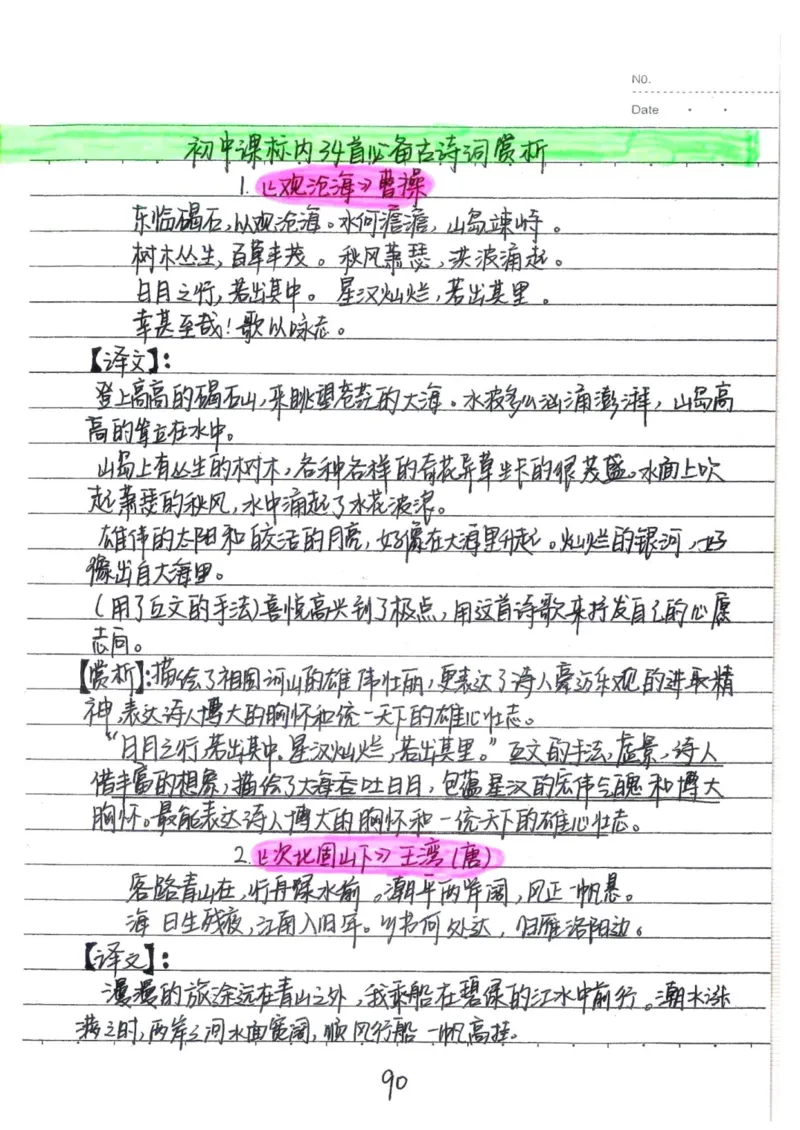 NO.
Date
初中课标内34首必备古诗词赏析
1.《观沧海》曹操
东临碣石,以观沧海。水何澹澹,山岛竦峙。
树木丛生,百草丰茂。秋风萧瑟,洪波涌起。
日月之行,若出其中。星汉灿烂,若出其里。
幸甚至哉!歌以咏志。
【译文】:
登上高高的碣石山,来眺望苍茫的大海。水波多么汹涌澎湃,山岛高
高的耸立在水中。
山岛上有丛生的树木,各种各样的奇花异草生长的很茂盛。水面上吹
起萧瑟的秋风,水中涌起了水花波浪。
雄伟的太阳和皎洁的月亮,好像在大海里升起。灿烂的银河,好
像出自大海里。
(用了互文的手法)喜悦高兴到了极点,用这首诗歌来抒发自己的心愿
志向。
【赏析】:描绘了祖国河山的雄伟壮丽,更表达了诗人豪迈乐观的进取精
神,表达诗人博大的胸怀和统一天下的雄心壮志。
“日月之行,若出其中。星汉灿烂,若出其里。”互文的手法,虚景,诗人
借丰富的想象,描绘了大海吞吐日月,包蕴星汉的宏伟气魄和博大
胸怀。最能表达诗人博大的胸怀和一统天下的雄心壮志。
2.《次北固山下》王湾(唐)
客路青山在,行舟绿水前。潮平两岸阔,风正一帆悬。
海日生残夜,江南入旧年。乡书何处达,归雁洛阳边。
【译文】:
漫漫的旅途远在青山之外,我乘船在碧绿的江水中前行。潮水涨
满之时,两岸之间水面宽阔,顺风行船一帆高挂。
90